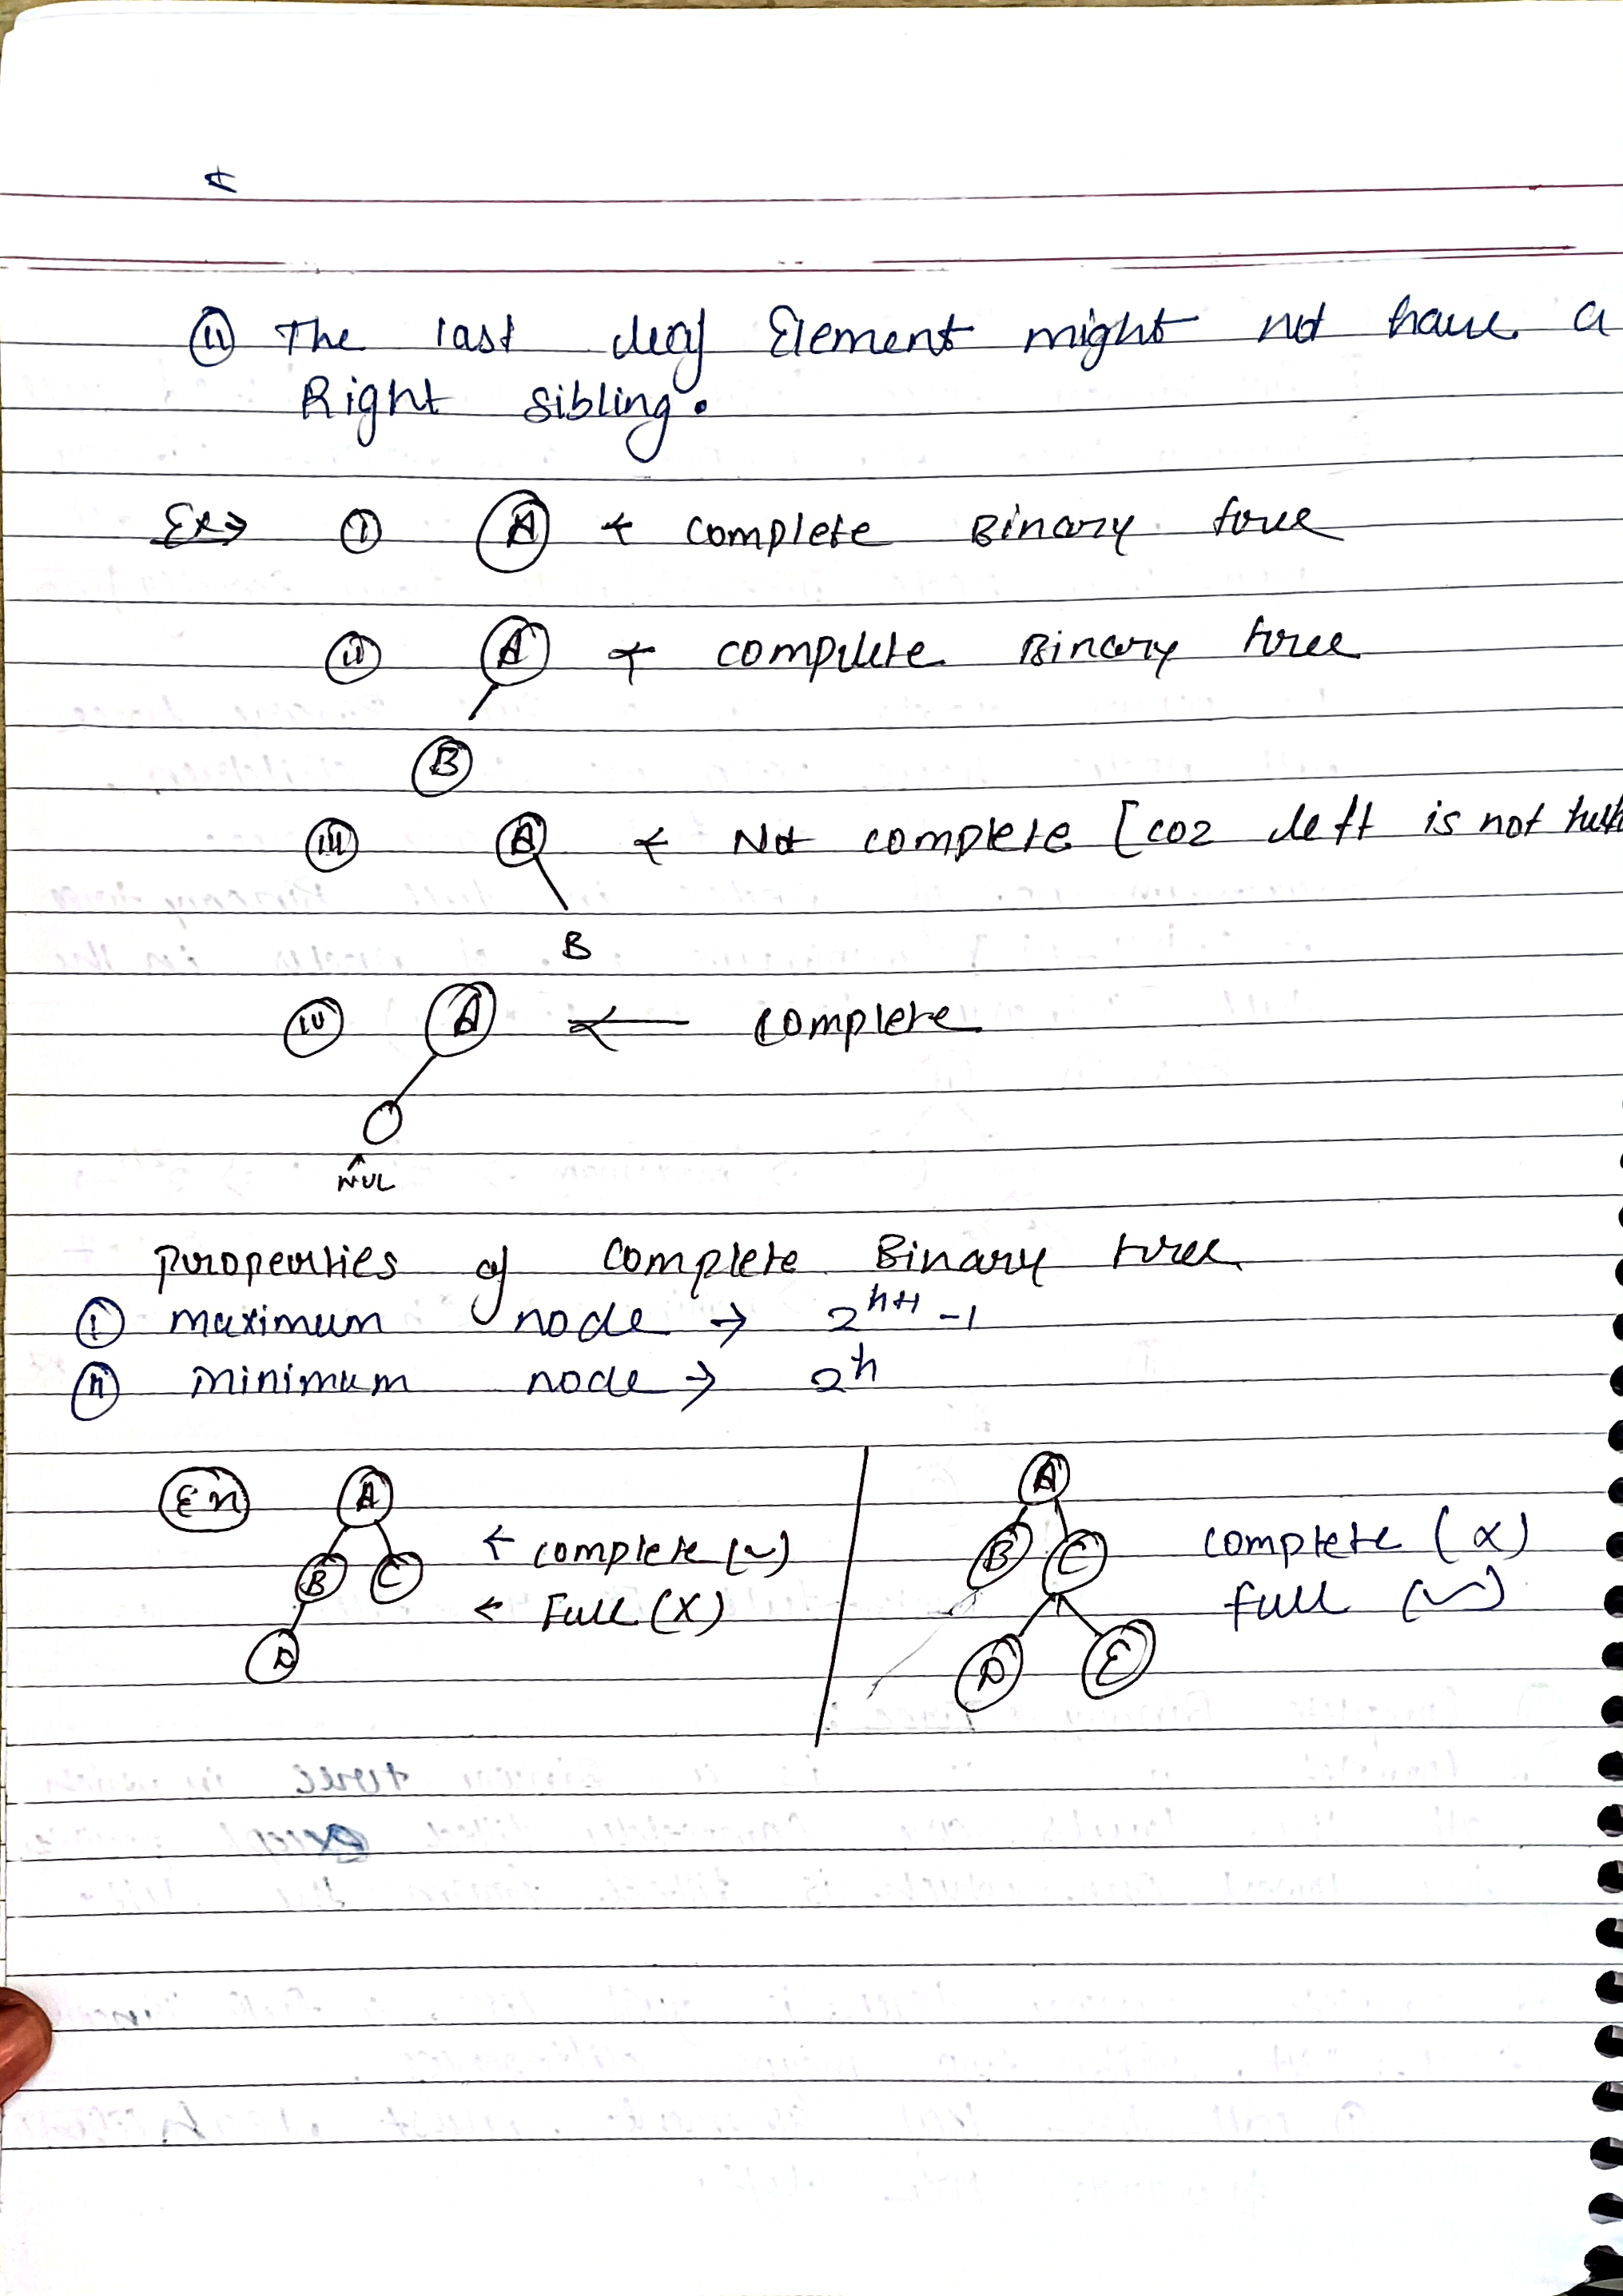 (ii) The last leaf Element might not have a
Right sibling.
Ex→ (i) (A) ← complete Binary tree
(ii) (A) ← complete Binary tree
(B)
(iii) (A) ← Not complete [coz left is not
B
(iv) (A) ← complete
NUL
Properties of complete Binary tree
(i) maximum node → 2^{h+1} -1
(ii) minimum node → 2^h
(Ex) (A)
(B) (C) ← complete (~)
← Full (X)
(D)
(A)
(B) (C) complete (x)
full (~)
(D) (E)